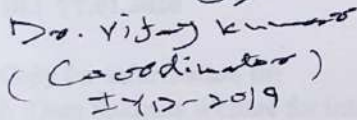 Dr. Vijay Kumar
(Coordinator)
IYD-2019